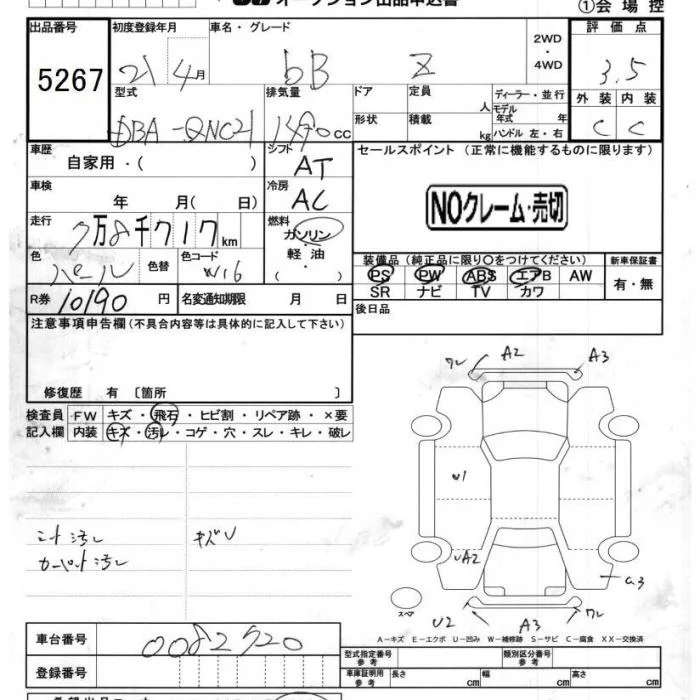 オークション出品申込書
①会場控
出品番号 初度登録年月 車名・グレード 2WD・4WD 評価点
5267 21 4月 bB Z 3.5
型式 排気量 ドア 定員 人 ディーラー・並行 外装 内装
DBA-QNC21 cc 形状 積載 kg モデル年式 年 ハンドル 左・右 C C
車歴 シフト セールスポイント (正常に機能するものに限ります)
自家用・( ) AT
車検 冷房
年 月( 日) AC NOクレーム・売切
走行 燃料
万8千717km ガソリン・軽油・( )
装備品(純正品に限り〇をつけてください) 新車保証書
色 色替 色コード PS PW ABS エアB AW 有・無
パール W16 SR ナビ TV カワ
R券 10190円 名変通知期限 月 日 後日品
注意事項申告欄(不具合内容等は具体的に記入して下さい)
修復歴 有 〔箇所 〕
ワレ A2 A3
検査員 FW キズ・飛石・ヒビ割・リペア跡・×要
記入欄 内装 キズ・汚レ・コゲ・穴・スレ・キレ・破レ
W1
シート汚レ キズU
カーペット汚レ
UA2
G3
スペア
U2 A3 ワレ
A-キズ E-エクボ U-凹み W-補修跡 S-サビ C-腐食 XX-交換済
車台番号 0082520
型式指定番号 参考 類別区分番号 参考
登録番号 車庫証明用 参考 長さ cm 幅 cm 高さ cm